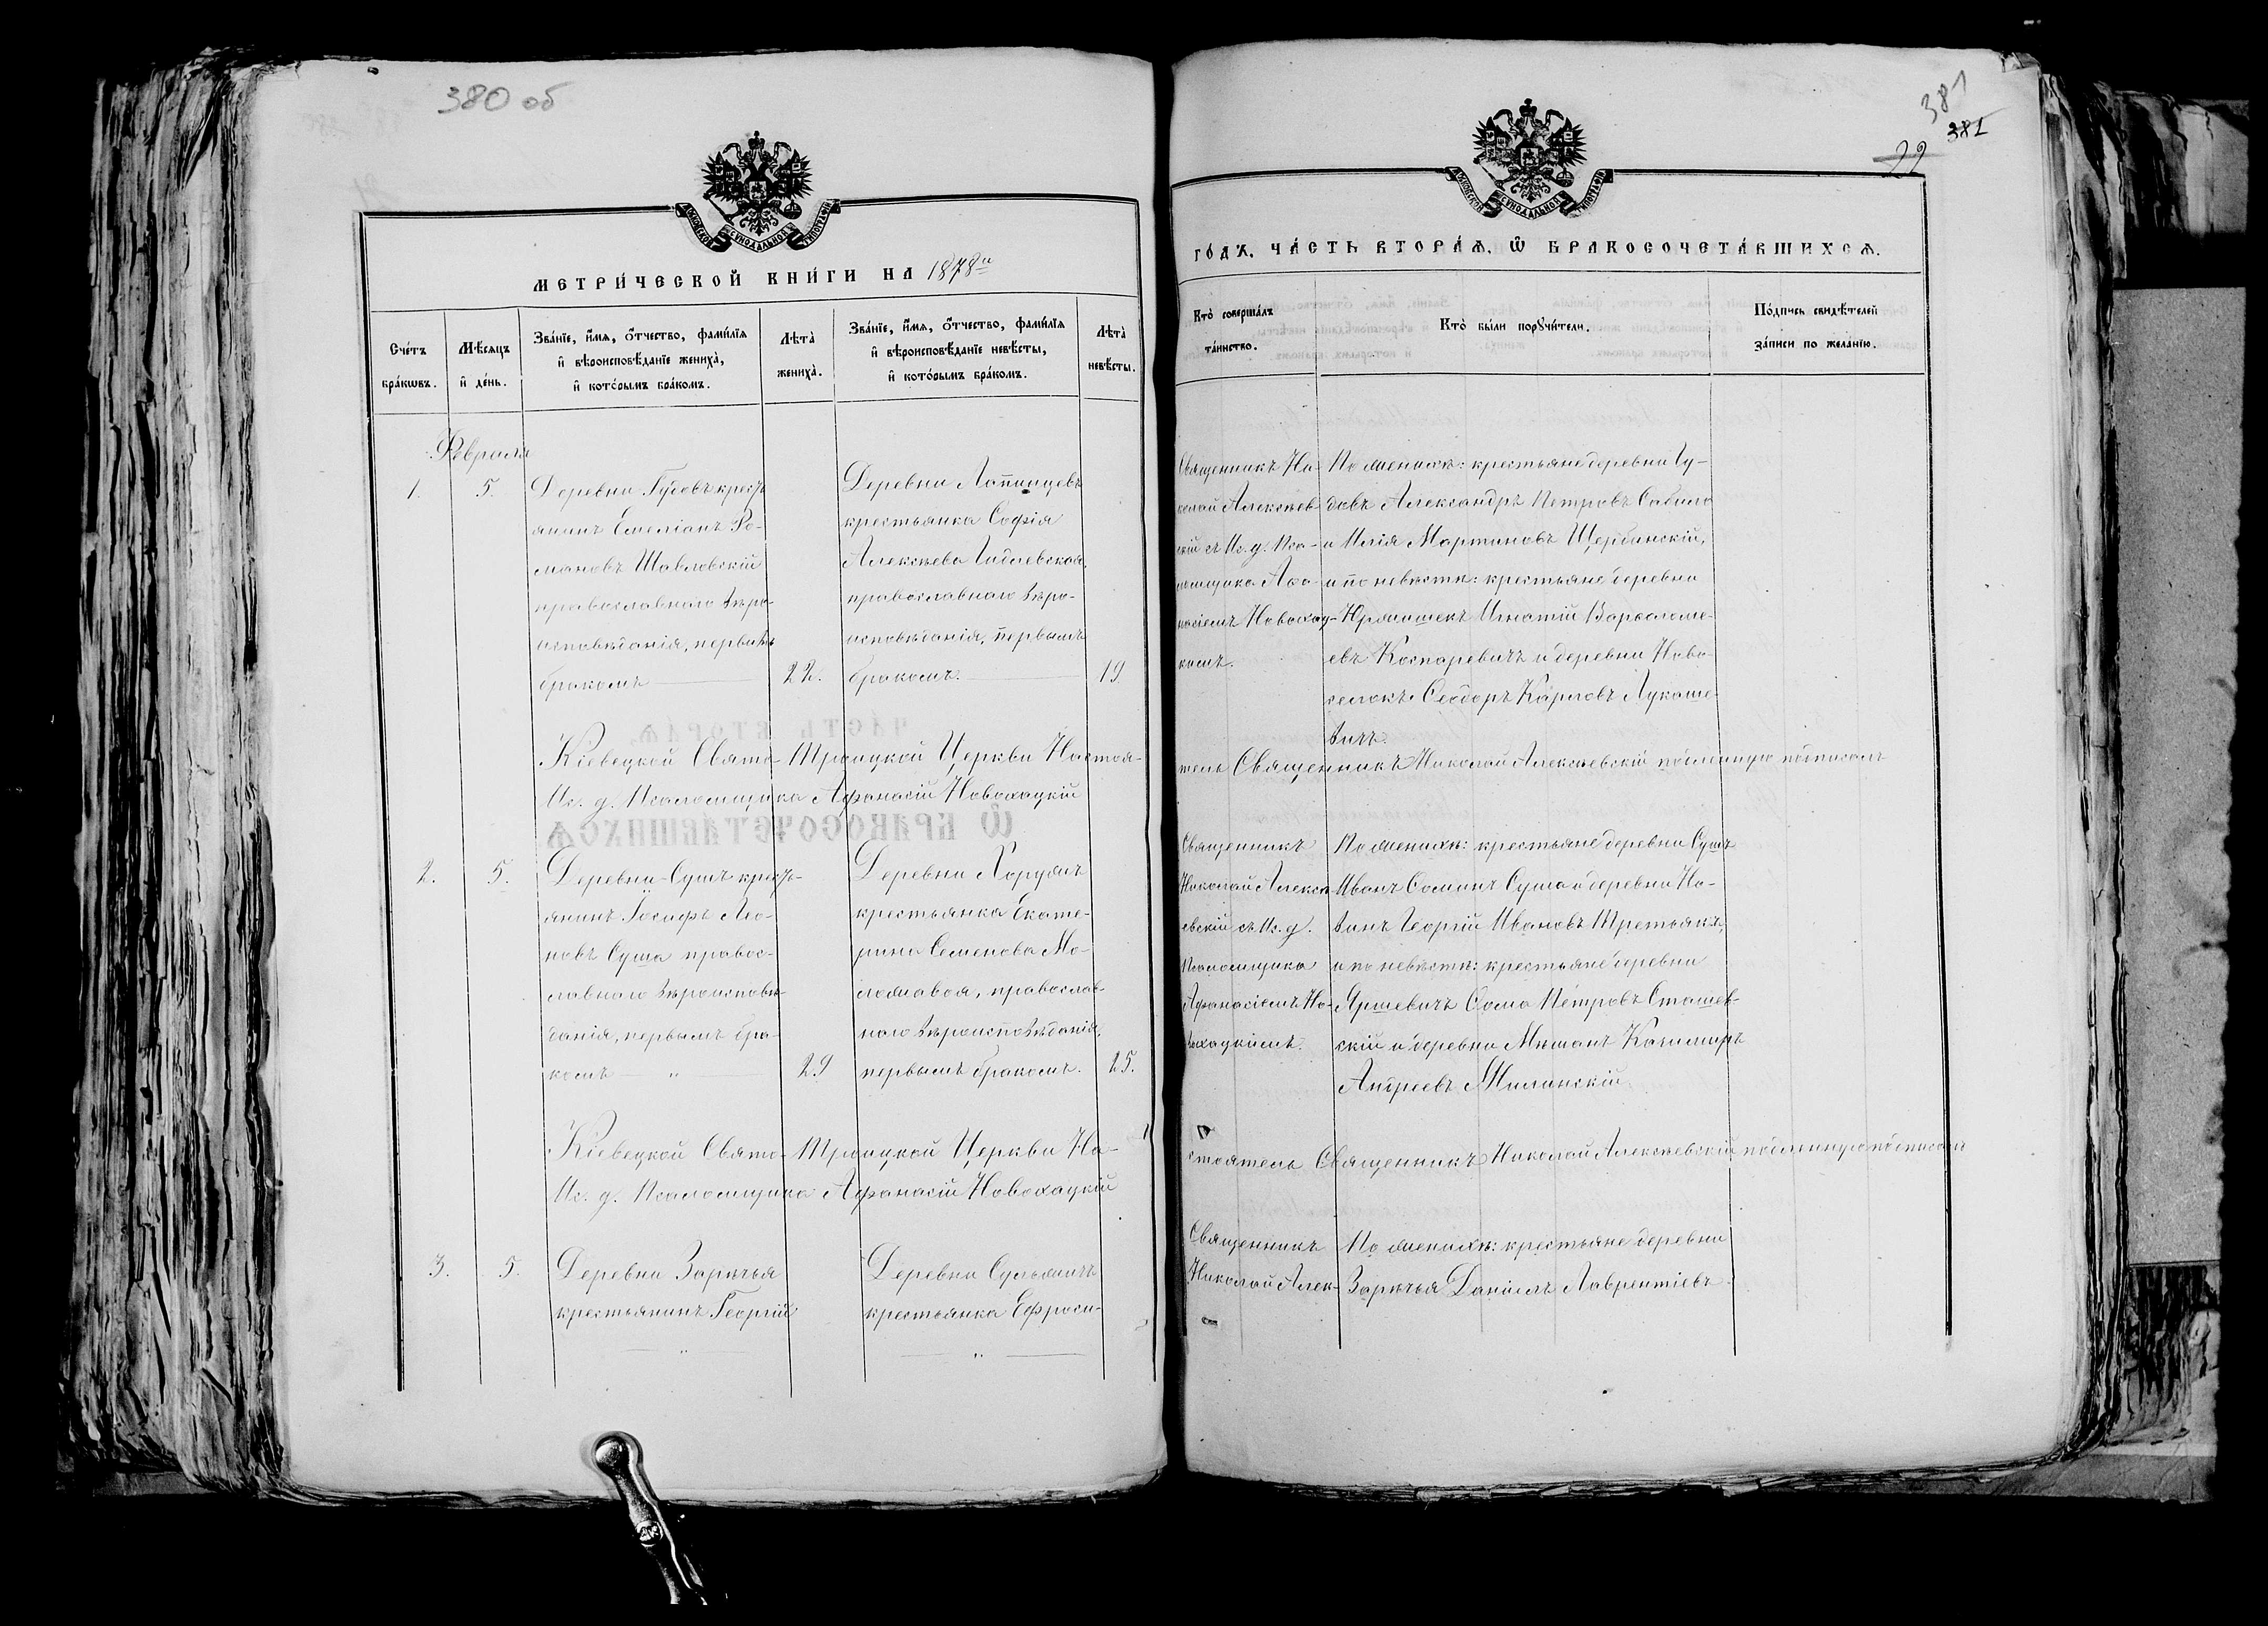 380 об
МОСКОВСКОЙ СѴНОДАЛЬНОЙ ТИПОГРАФІИ
МЕТРИ́ЧЕСКОЙ КНИ́ГИ НА 1878й
Сче́тъ бра́кѡвъ.
Мѣ́сяцъ и҆ де́нь.
Зва́нїе, и҆́мѧ, ѻ҆́тчество, фами́лїѧ
и҆ вѣроисповѣ́данїе жениха̀,
и҆ кото́рымъ бра́комъ.
Лѣ́та̀ жениха̀.
Зва́нїе, и҆́мѧ, ѻ҆́тчество, фами́лїѧ
и҆ вѣроисповѣ́данїе невѣ́сты,
и҆ кото́рымъ бра́комъ.
Лѣ́та̀ невѣ́сты.
Февраля
1.
5.
Деревни Гудовъ кресть-
янинъ Емеліанъ Ро-
мановъ Шавловскій
православнаго вѣро-
исповѣданія, первымъ
бракомъ
22.
Деревни Лопницевъ
крестьянка Софія
Алексѣева Гидлевская,
православнаго вѣро-
исповѣданія, первымъ
бракомъ.
19
Кіевецкой Свято-Троицкой Церкви Настоя-
Ис. д. Псаломщика Афанасій Новохацкій
2.
5.
Деревни Сушъ кресть-
янинъ Іосифъ Лео-
новъ Суша правос-
лавнаго вѣроисповѣ-
данія, первымъ бра-
комъ
29
Деревни Хорумъ
крестьянка Екате-
рина Семенова Мо-
православ-
наго вѣроисповѣданія,
первымъ бракомъ.
25.
Кіевецкой Свято-Троицкой Церкви На-
Ис. д. Псаломщика Афанасій Новохацкій
3.
5.
Деревни Зарѣчья
крестьянинъ Георгій
Деревни Сульжинъ
крестьянка Ефроси-
381
381
22
МОСКОВСКОЙ СѴНОДАЛЬНОЙ ТИПОГРАФІИ
ГО́ДЪ, ЧА́СТЬ ВТОРА́Ѧ, Ѽ БРАКОСОЧЕТА́ВШИХСѦ.
Кто̀ соверша́лъ
та́инство.
Кто̀ бы́ли порꙋчи́тели.
По́дпись свидѣ́телей
за́писи по жела́нїю.
Священникъ Ни-
колай Алексѣев-
скій съ Ис. д. Пса-
ломщика Афа-
насіемъ Новохац-
комъ.
По женихѣ: крестьяне деревни Гу-
довъ Александръ Петровъ Сабило
и Илія Мартиновъ Щербинскій,
и по невѣстѣ: крестьяне деревни
Игнатій Варѳоломе-
евъ Каспаревичъ и деревни Ново-
селокъ Ѳеодоръ Карповъ Лукаше-
вичъ.
тель Священникъ Николай Алексѣевскій подлинную подписалъ
Священникъ
Николай Алексѣ-
евскій съ Ис. д.
Псаломщика
Афанасіемъ Но-
вохацкимъ.
По женихѣ: крестьяне деревни Сушъ
Иванъ Ѳоминъ Суша и деревни Но-
винъ Георгій Ивановъ Третьякъ,
и по невѣстѣ: крестьяне деревни
Яршевичъ Ѳома Петровъ Сташев-
скій и деревни Мѣшанъ Казимиръ
Андреевъ Милинскій
стоятель Священникъ Николай Алексѣевскій подлинную подписалъ
Священникъ
Николай Алек-
По женихѣ: крестьяне деревни
Зарѣчья Даніилъ Лаврентіевъ